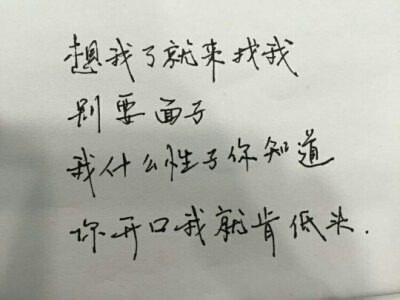 想我了就来找我
别要面子
我什么性子你知道
你开口我就肯低头.